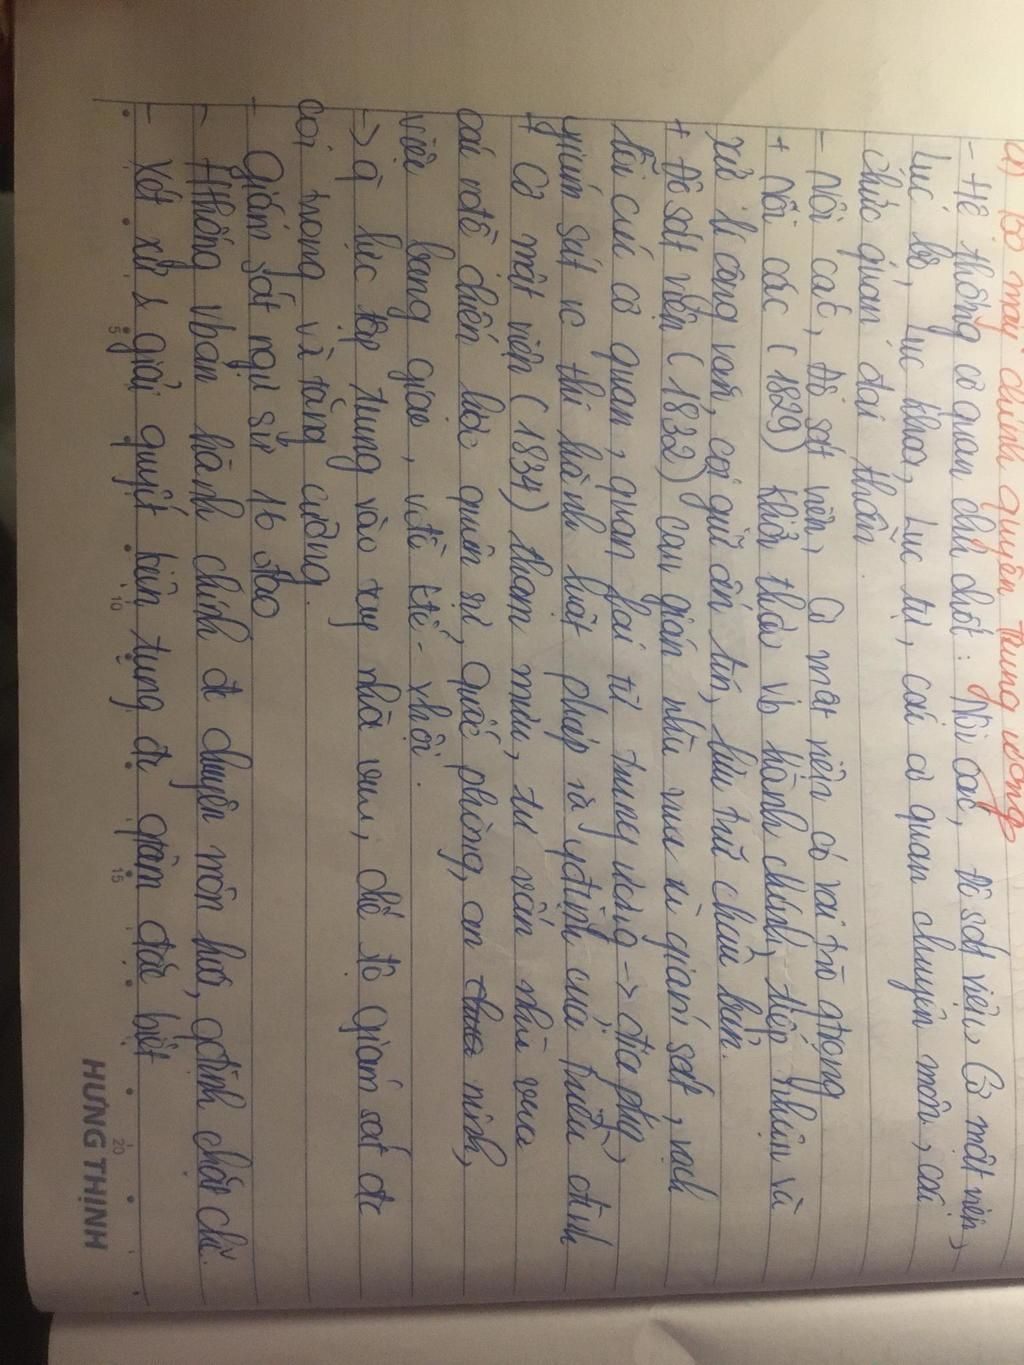 a) Bộ máy chính quyền trung ương
- Hệ thống cơ quan chủ chốt: Nội các, Đô sát viện, Cơ mật viện,
Lục bộ, Lục khoa, Lục tự, các cơ quan chuyên môn, các
chức quan đại thần.
- Nội các, Đô sát viện, Cơ mật viện có vai trò qtrọng
+ Nội các (1829) khởi thảo vb hành chính, tiếp nhận và
xử lí công văn, coi giữ ấn tín, lưu trữ châu bản.
+ Đô sát viện (1832) can gián nhà vua và giám sát, vạch
lỗi các cơ quan, quan lại từ trung ương -> địa phg,
giám sát vc thi hành luật pháp và qđịnh của triều đình
+ Cơ mật viện (1834) tham mưu, tư vấn nhà vua
các vđề chiến lược quân sự, quốc phòng, an ninh,
viên bang giao, vđề ktế - xhội.
-> q lực tập trung vào tay nhà vua, chế độ giám sát đc
coi trọng và tăng cường.
- Giám sát ngự sử 16 đạo
- Hthống vbản hành chính đc chuyên môn hoá, qđịnh chặt chẽ.
- Xét xử & giải quyết kiện tụng đc qtâm đặc biệt
5 10 15 20
HƯNG THỊNH